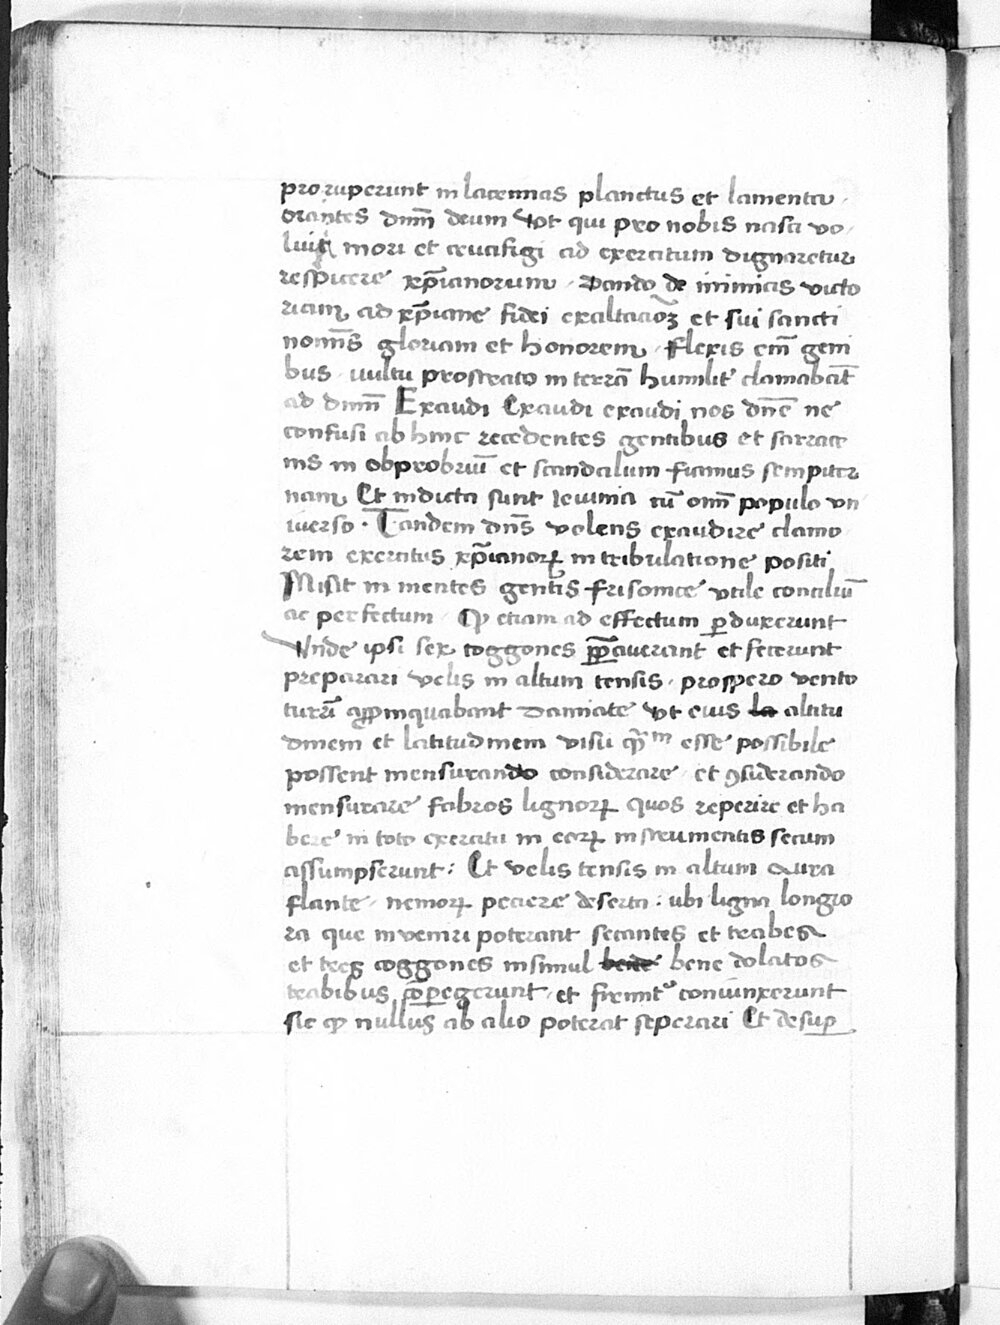 proruperunt in lacrimas planctus et lamenta
orantes dnm̄ deum vt qui pro nobis nasci vo
luit mori et crucifigi ad exercitum dignaretur
respicere xp̄ianorum . Dando de inimicis victo
riam ad xp̄iane fidei exaltacōꝫ et sui sancti
nomīs gloriam et honorem . flexis em̄ geni
bus . uultu prostrato in terrā humilit͛ clamabāt
ad dnm̄ Exaudi Exaudi exaudi nos dn̄e ne
confusi ab hinc recedentes gentibus et sarrace
nis in obprobriū et scandalum fiamus sempiter
nam . Et indicta sunt ieiunia cū om̄ populo vn
iuerso . Tandem dn̄s volens exaudire clamo
rem exercitus xp̄ianoꝝ in tribulatione positi
Misit in mentes gentis frisonice vtile conciliū
ac perfectum . Ꝙ etiam ad effectum ꝑduxerunt
Vnde ipsi sex coggones pp̄auerant et fecerunt
preparari velis in altum tensis . prospero vento
turrī apꝓinquabant Damiate vt eius la altitu
dinem et latitudinem visu qᷓm esse possibile
possent mensurando considerare . et ꝯsiderando
mensurare fabros lignoꝝ quos reperire et ha
bere in toto exercitu in eoꝝ instrumentis secum
assumpserunt : Et velis tensis in altum aura
flante . nemoꝝ peciere deserta : ubi ligna longio
ra que inveniri poterant secantes et trabes
et tres coggones insimul bene bene dolatos
trabibus cōꝑegerunt . et firmit͛ coniunxerunt
sic ꝙ nullus ab alio poterat seperari Et desuꝑ